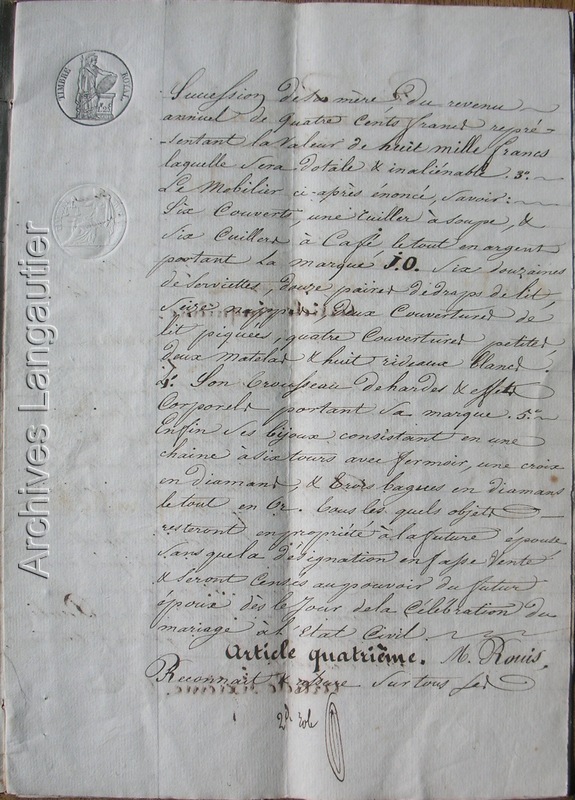 TIMBRE ROYAL
Succession de sa mère & du revenu
annuel de quatre cents francs repré-
sentant la valeur de huit mille francs
laquelle sera dotale & inaliénable. 3.°
Le Mobilier ci-après énoncé, savoir:
Six Couverts, une Cuiller à soupe, &
six Cuillers à Café, le tout en argent
portant la marque J.O. six douzaines
de serviettes, douze paires de draps de lit,
seize nappes, deux Couvertures de
lit piquées, quatre Couvertures petites,
deux matelas & huit rideaux blancs.
4.° Son trousseau de hardes & effets
Corporels portant sa marque. 5.°
Enfin ses bijoux consistant en une
chaine a six tours avec fermoir, une croix
en diamans, & trois bagues en diamans
le tout en Or. tous les quels objets
resteront en propriété à la future épouse
sans que la désignation en fasse Vente
& seront Censés au pouvoir du futur
époux dès le Jour de la Célébration du
mariage à l'Etat Civil
Article quatrième. M. Rouis,
Reconnait & assure sur tous ses
2.d role
Archives Langautier